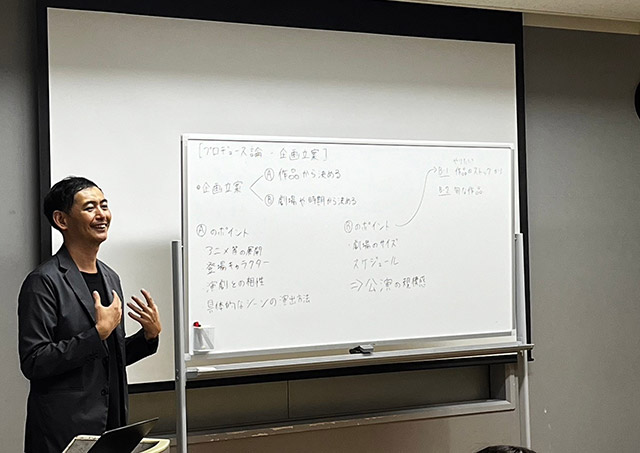 [プロデュース論・企画立案]
・企画立案
Ⓐ 作品から決める
Ⓑ 劇場や時期から決める
Ⓐのポイント
アニメ等の展開
登場キャラクター
演劇との相性
具体的なシーンの演出方法
Ⓑのポイント
劇場のサイズ
スケジュール
⇒公演の規模感
やりたい
B-1 作品のストックから
B-2 旬な作品